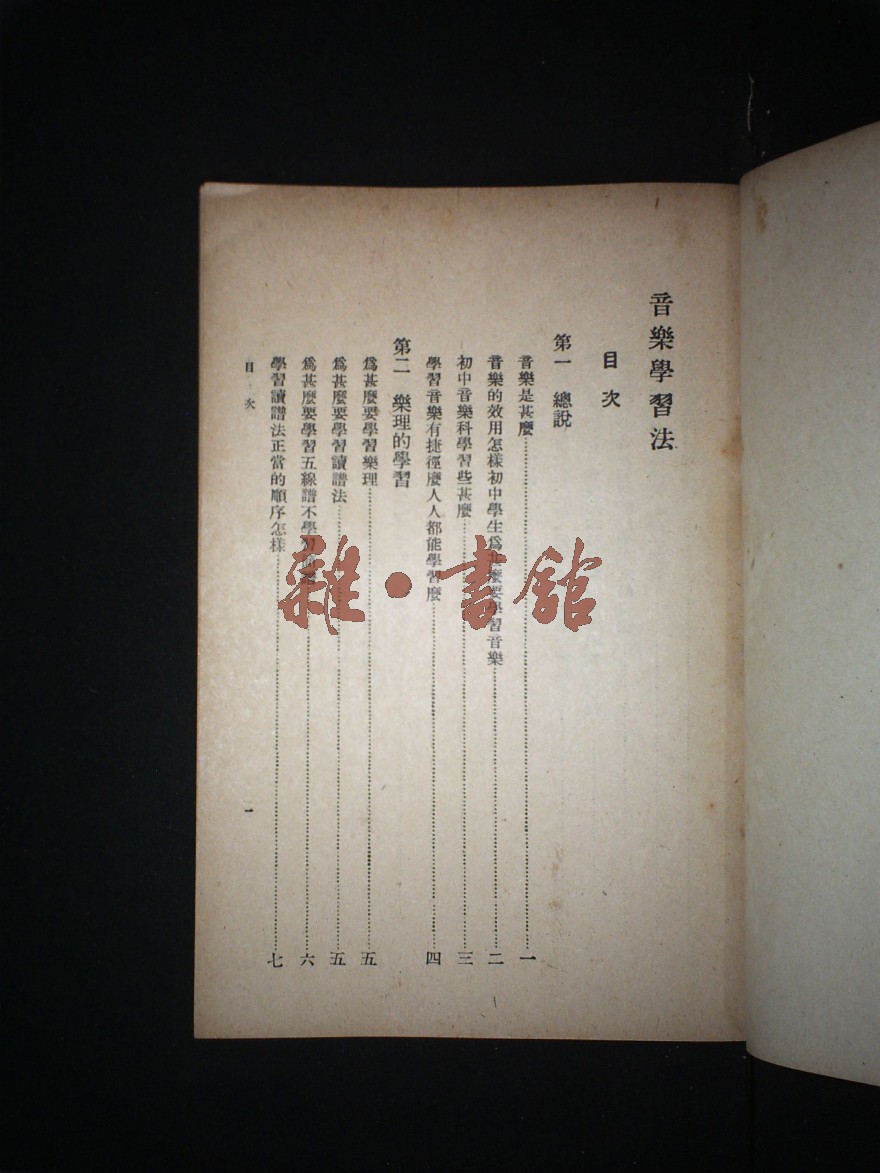 音樂學習法
目次
第一　總說
音樂是甚麼…………一
音樂的效用怎樣初中學生爲甚麼要學習音樂…………二
初中音樂科學習些甚麼…………三
學習音樂有捷徑麼人人都能學習麼…………四
第二　樂理的學習
爲甚麼要學習樂理…………五
爲甚麼要學習讀譜法…………五
爲甚麼要學習五線譜不學習…………六
學習讀譜法正當的順序怎樣…………七
目次
一
雜·書館